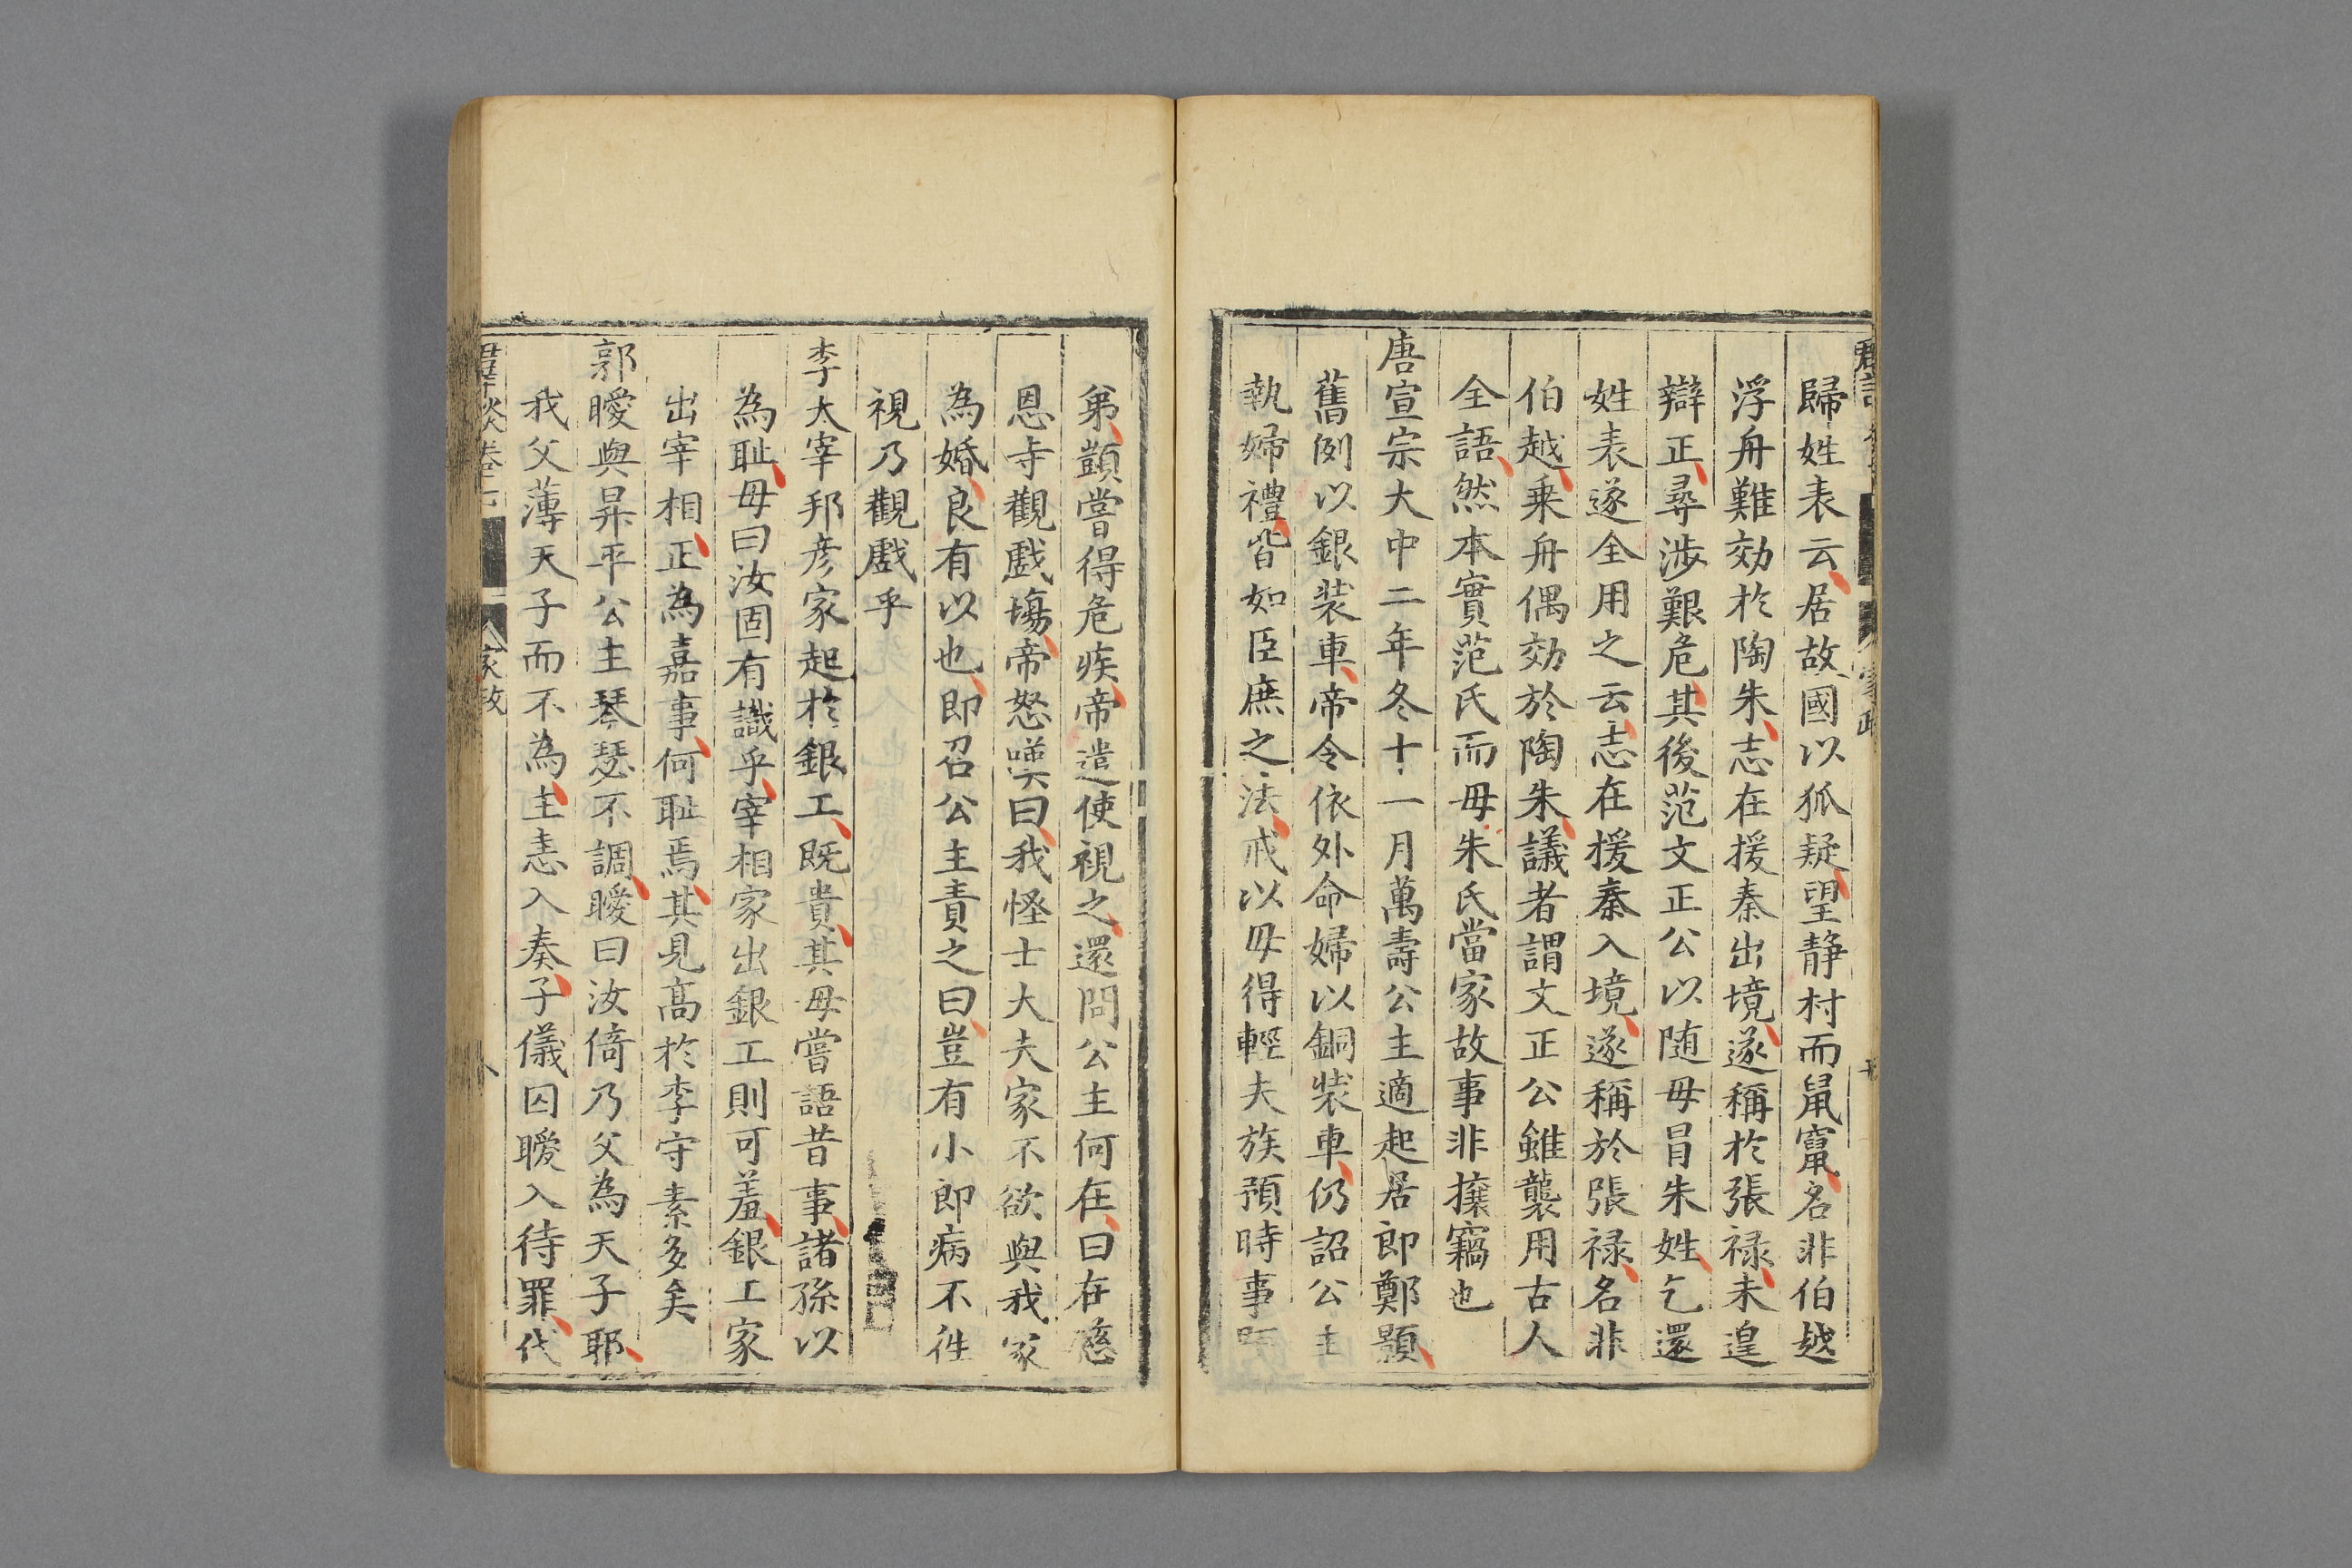 歸姓表云居故國以狐疑望静村而䑕竄名非伯越
浮舟難効於陶朱志在援秦出境遂稱於張禄未遑
辯正尋涉艱危其後范文正公以随母冒朱姓乞還
姓表遂全用之云志在援秦入境遂稱於張禄名非
伯越乗舟偶効於陶朱議者謂文正公雖襲用古人
全語然本實范氏而毋朱氏當家故事非攘竊也
唐宣宗大中二年冬十一月萬壽公主適起居郎鄭顥
舊例以銀装車帝令依外命婦以銅装車仍詔公主
執婦禮皆如臣庶之法戒以毋得輕夫族預時事
弟顗嘗得危疾帝遣使視之還問公主何在曰在慈
恩寺觀戲場帝怒嘆曰我怪士大夫家不欲與我家
為婚良有以也即召公主責之曰豈有小郎病不徃
視乃觀戲乎
李太宰邦彦家起於銀工既貴其母嘗語昔事諸孫以
為耻母曰汝固有識乎宰相家出銀工則可羞銀工家
出宰相正為嘉事何耻焉其見高於李守素多矣
郭曖與昇平公主琴瑟不調曖曰汝倚乃父為天子耶
我父薄天子而不為主恚入奏子儀囚曖入待罪代
家政